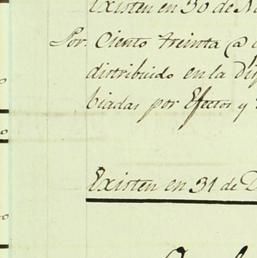 Existen en 30 de No
Por Ciento treinta
distribuido en la
biadas por Efectos y
Existen en 31 de D